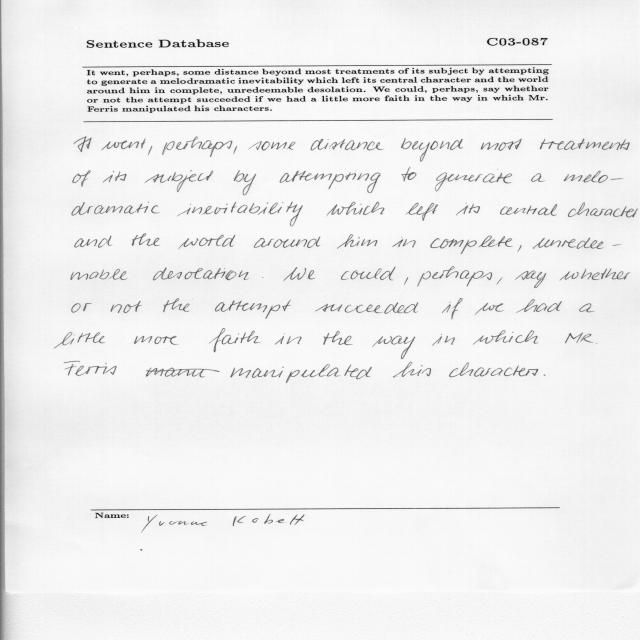 Sentence Database C03-087
It went, perhaps, some distance beyond most treatments of its subject by attempting
to generate a melodramatic inevitability which left its central character and the world
around him in complete, unredeemable desolation. We could, perhaps, say whether
or not the attempt succeeded if we had a little more faith in the way in which Mr.
Ferris manipulated his characters.
It went, perhaps, some distance beyond most treatments
of its subject by attempting to generate a melo-
dramatic inevitability which left its central character
and the world around him in complete, unredee-
mable desolation. We could, perhaps, say whether
or not the attempt succeeded if we had a
little more faith in the way in which Mr.
Ferris manipulated his characters.
Name: Yvonne